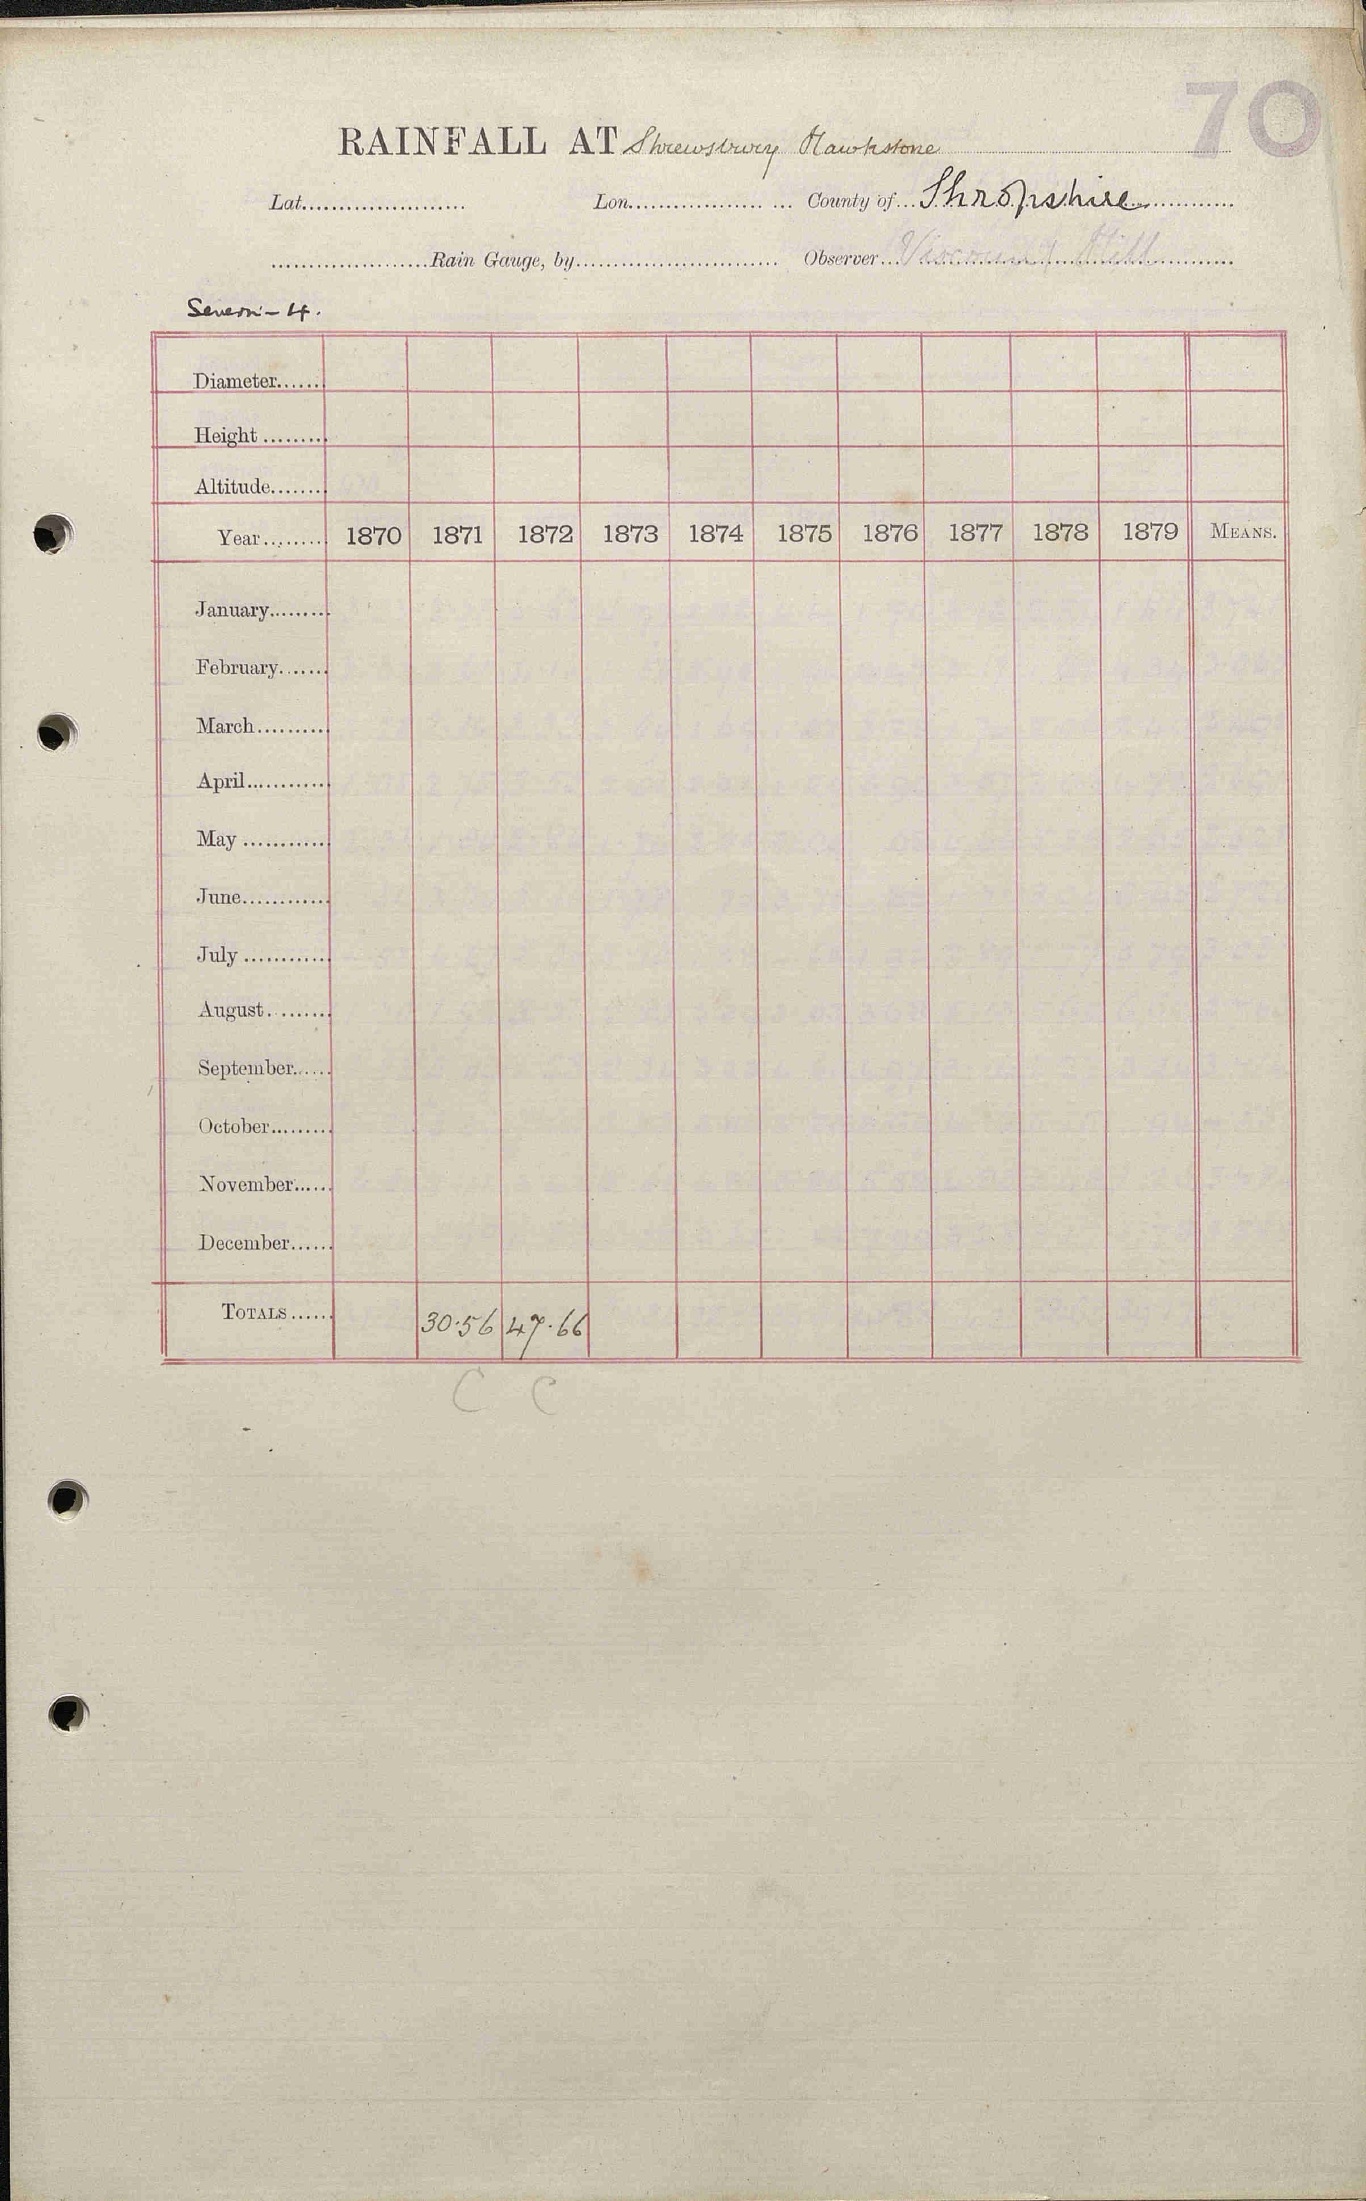 70
RAINFALL AT Shrewsbury Hawkstone
Lat...................... Lon.................. ... County of... Shropshire
.....................Rain Gauge, by........................... Observer... Viscount Hill
Severn - 4.
Diameter......
Height .........
Altitude.......
Year......... 1870 1871 1872 1873 1874 1875 1876 1877 1878 1879 MEANS.
January........
February.......
March..........
April...........
May ............
June............
July ............
August.........
September......
October.........
November......
December......
TOTALS...... 30.56 47.66
C C